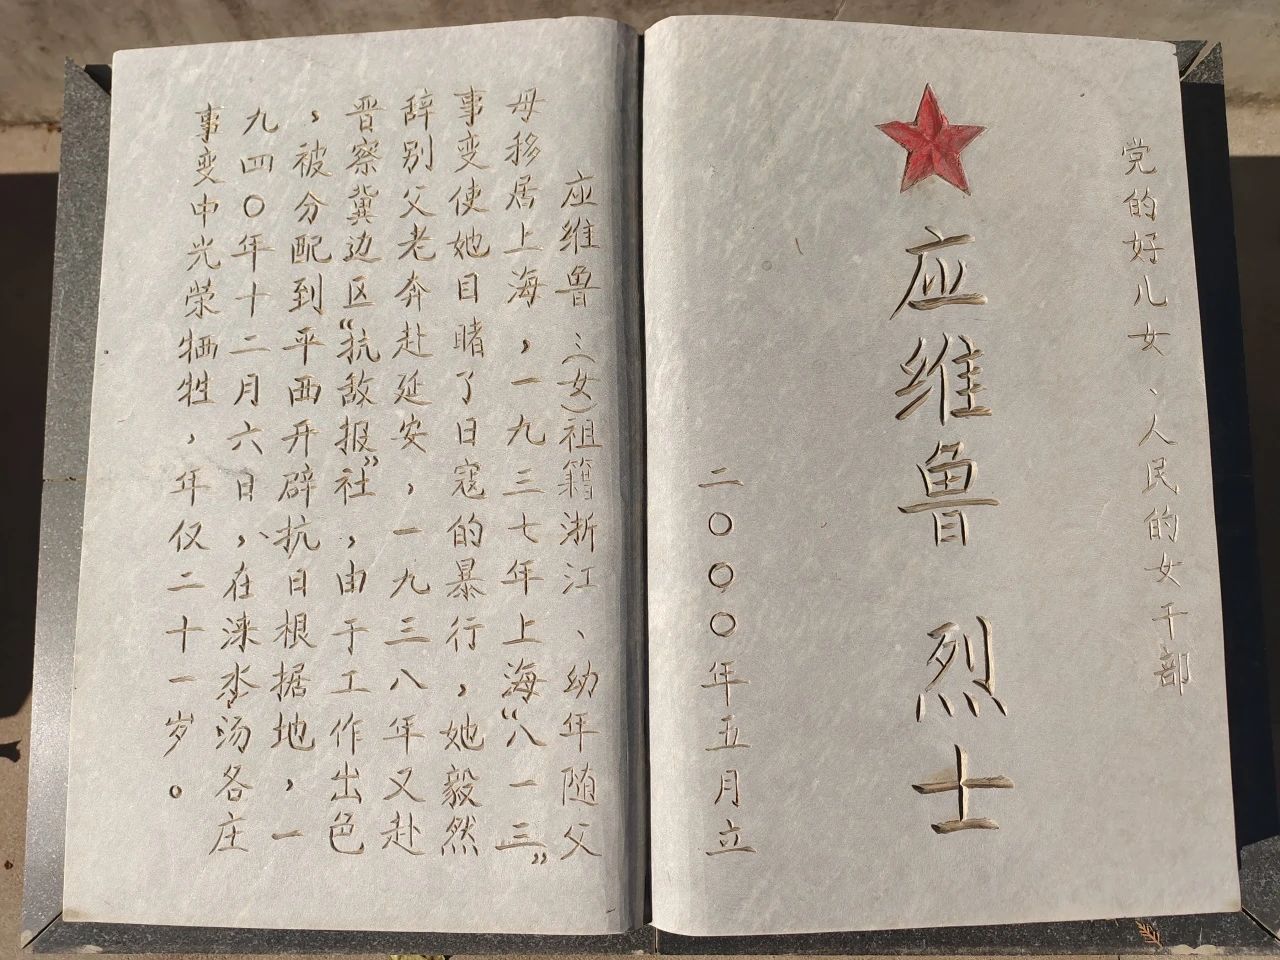 党的好儿女、人民的女干部
应维鲁 烈士
二〇〇〇年五月立
应维鲁：（女）祖籍浙江、幼年随父
母移居上海，一九三七年上海“八一三”
事变使她目睹了日寇的暴行，她毅然
辞别父老奔赴延安，一九三八年又赴
晋察冀边区“抗敌报”社，由于工作出色
，被分配到平西开辟抗日根据地，一
九四〇年十二月六日，在涞水汤各庄
事变中光荣牺牲，年仅二十一岁。